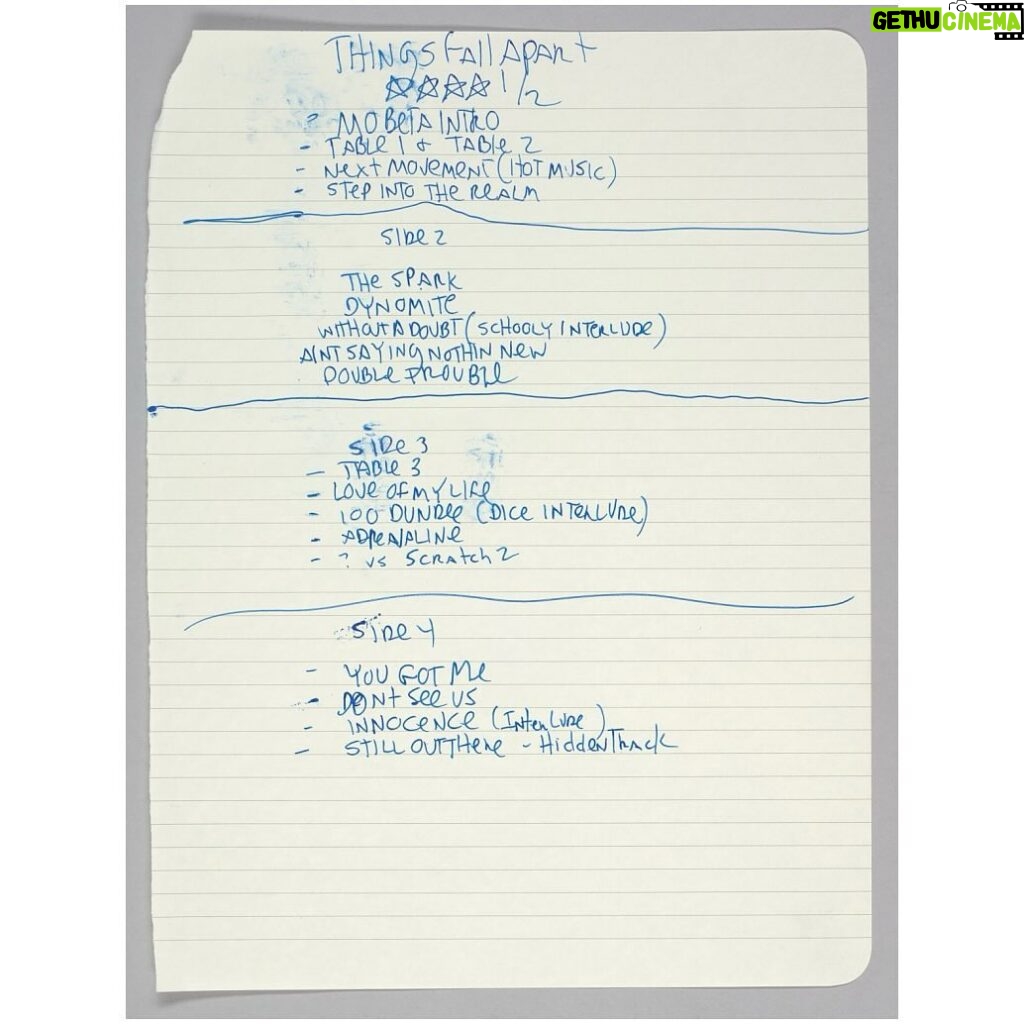 GETHUCINEMA
THINGS FALL APART
☆☆☆☆ 1/2
- MO BETA INTRO
- TABLE 1 & TABLE 2
- NEXT MOVEMENT (HOT MUSIC)
- STEP INTO THE REALM
SIDE 2
THE SPARK
DYNOMITE
WITHOUT A DOUBT (SCHOOLY INTERLUDE)
AINT SAYING NOTHIN NEW
DOUBLE TROUBLE
SIDE 3
- TABLE 3
- LOVE OF MY LIFE
- 100 DUNDEE (DICE INTERLUDE)
- ADRENALINE
- ? VS SCRATCH 2
SIDE 4
- YOU GOT ME
- DONT SEE US
- INNOCENCE (INTERLUDE)
- STILL OUT THERE - HIDDEN TRACK